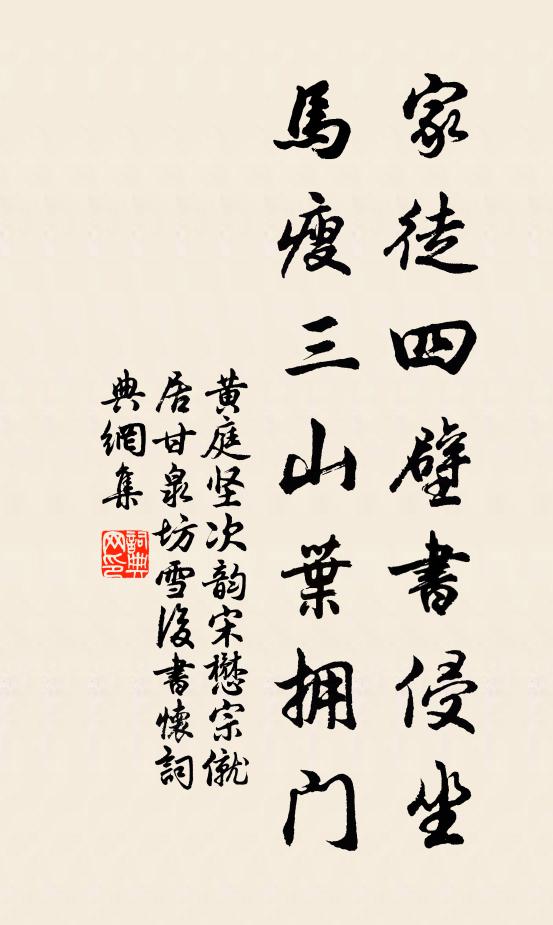 家徒四壁書侵坐
馬瘦三山葉拥门
黄庭坚次韵宋懋宗僦
居甘泉坊雪後書懷詞
典網集
詞典网印